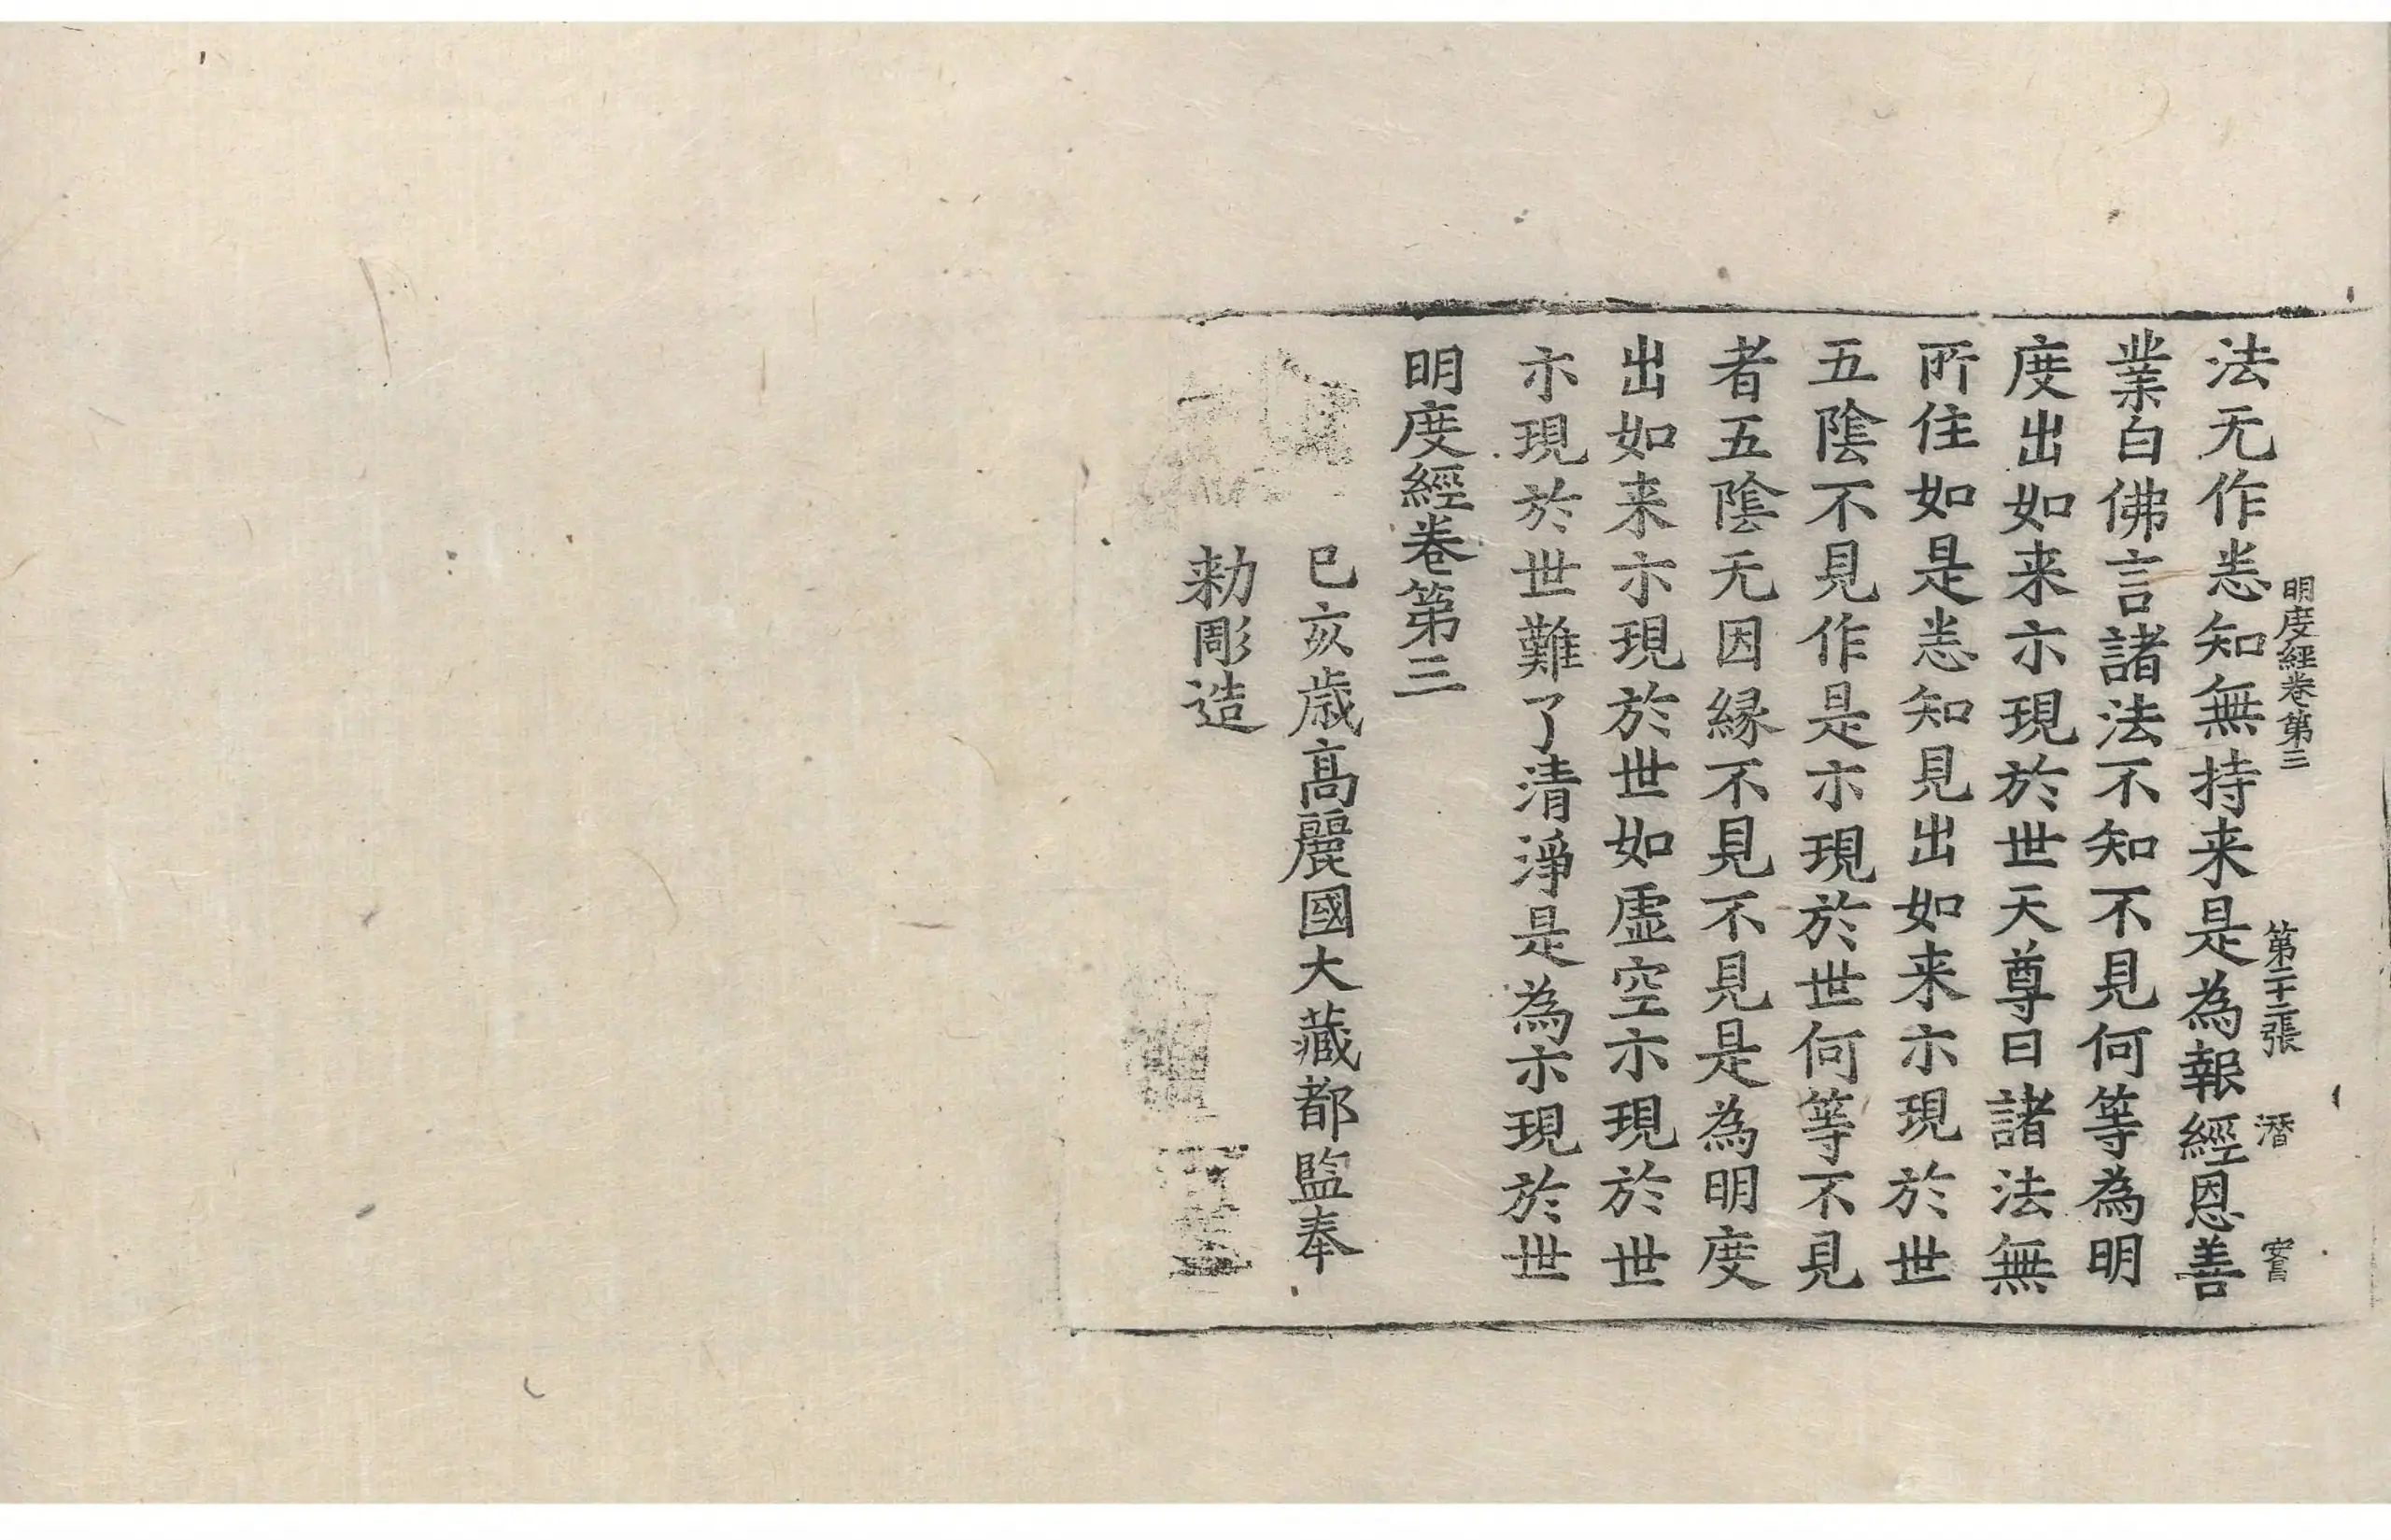 明度經卷第三 第二十二張 潛 
法无作恙知無持来是為報經恩善
業白佛言諸法不知不見何等為明
度出如来示現於世天尊曰諸法無
所住如是恙知見出如来示現於世
五陰不見作是示現於世何等不見
者五陰无因縁不見不見是為明度
出如来示現於世如虛空示現於世
示現於世難了清淨是為示現於世
明度經卷第三
己亥歲高麗國大藏都監奉
勑彫造